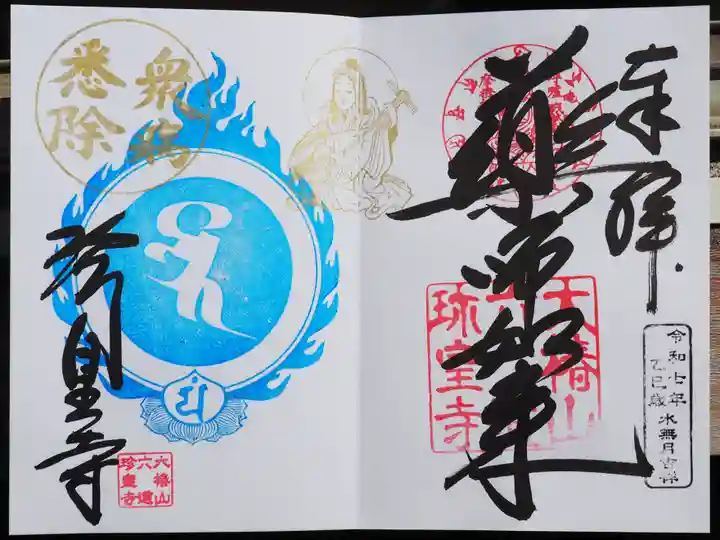 奉拝
薬師如来
大椿山
六道
珍皇寺
令和七年
乙巳歳 水無月吉祥
衆病
悉除
珍皇寺
大椿山
六道
珍皇寺